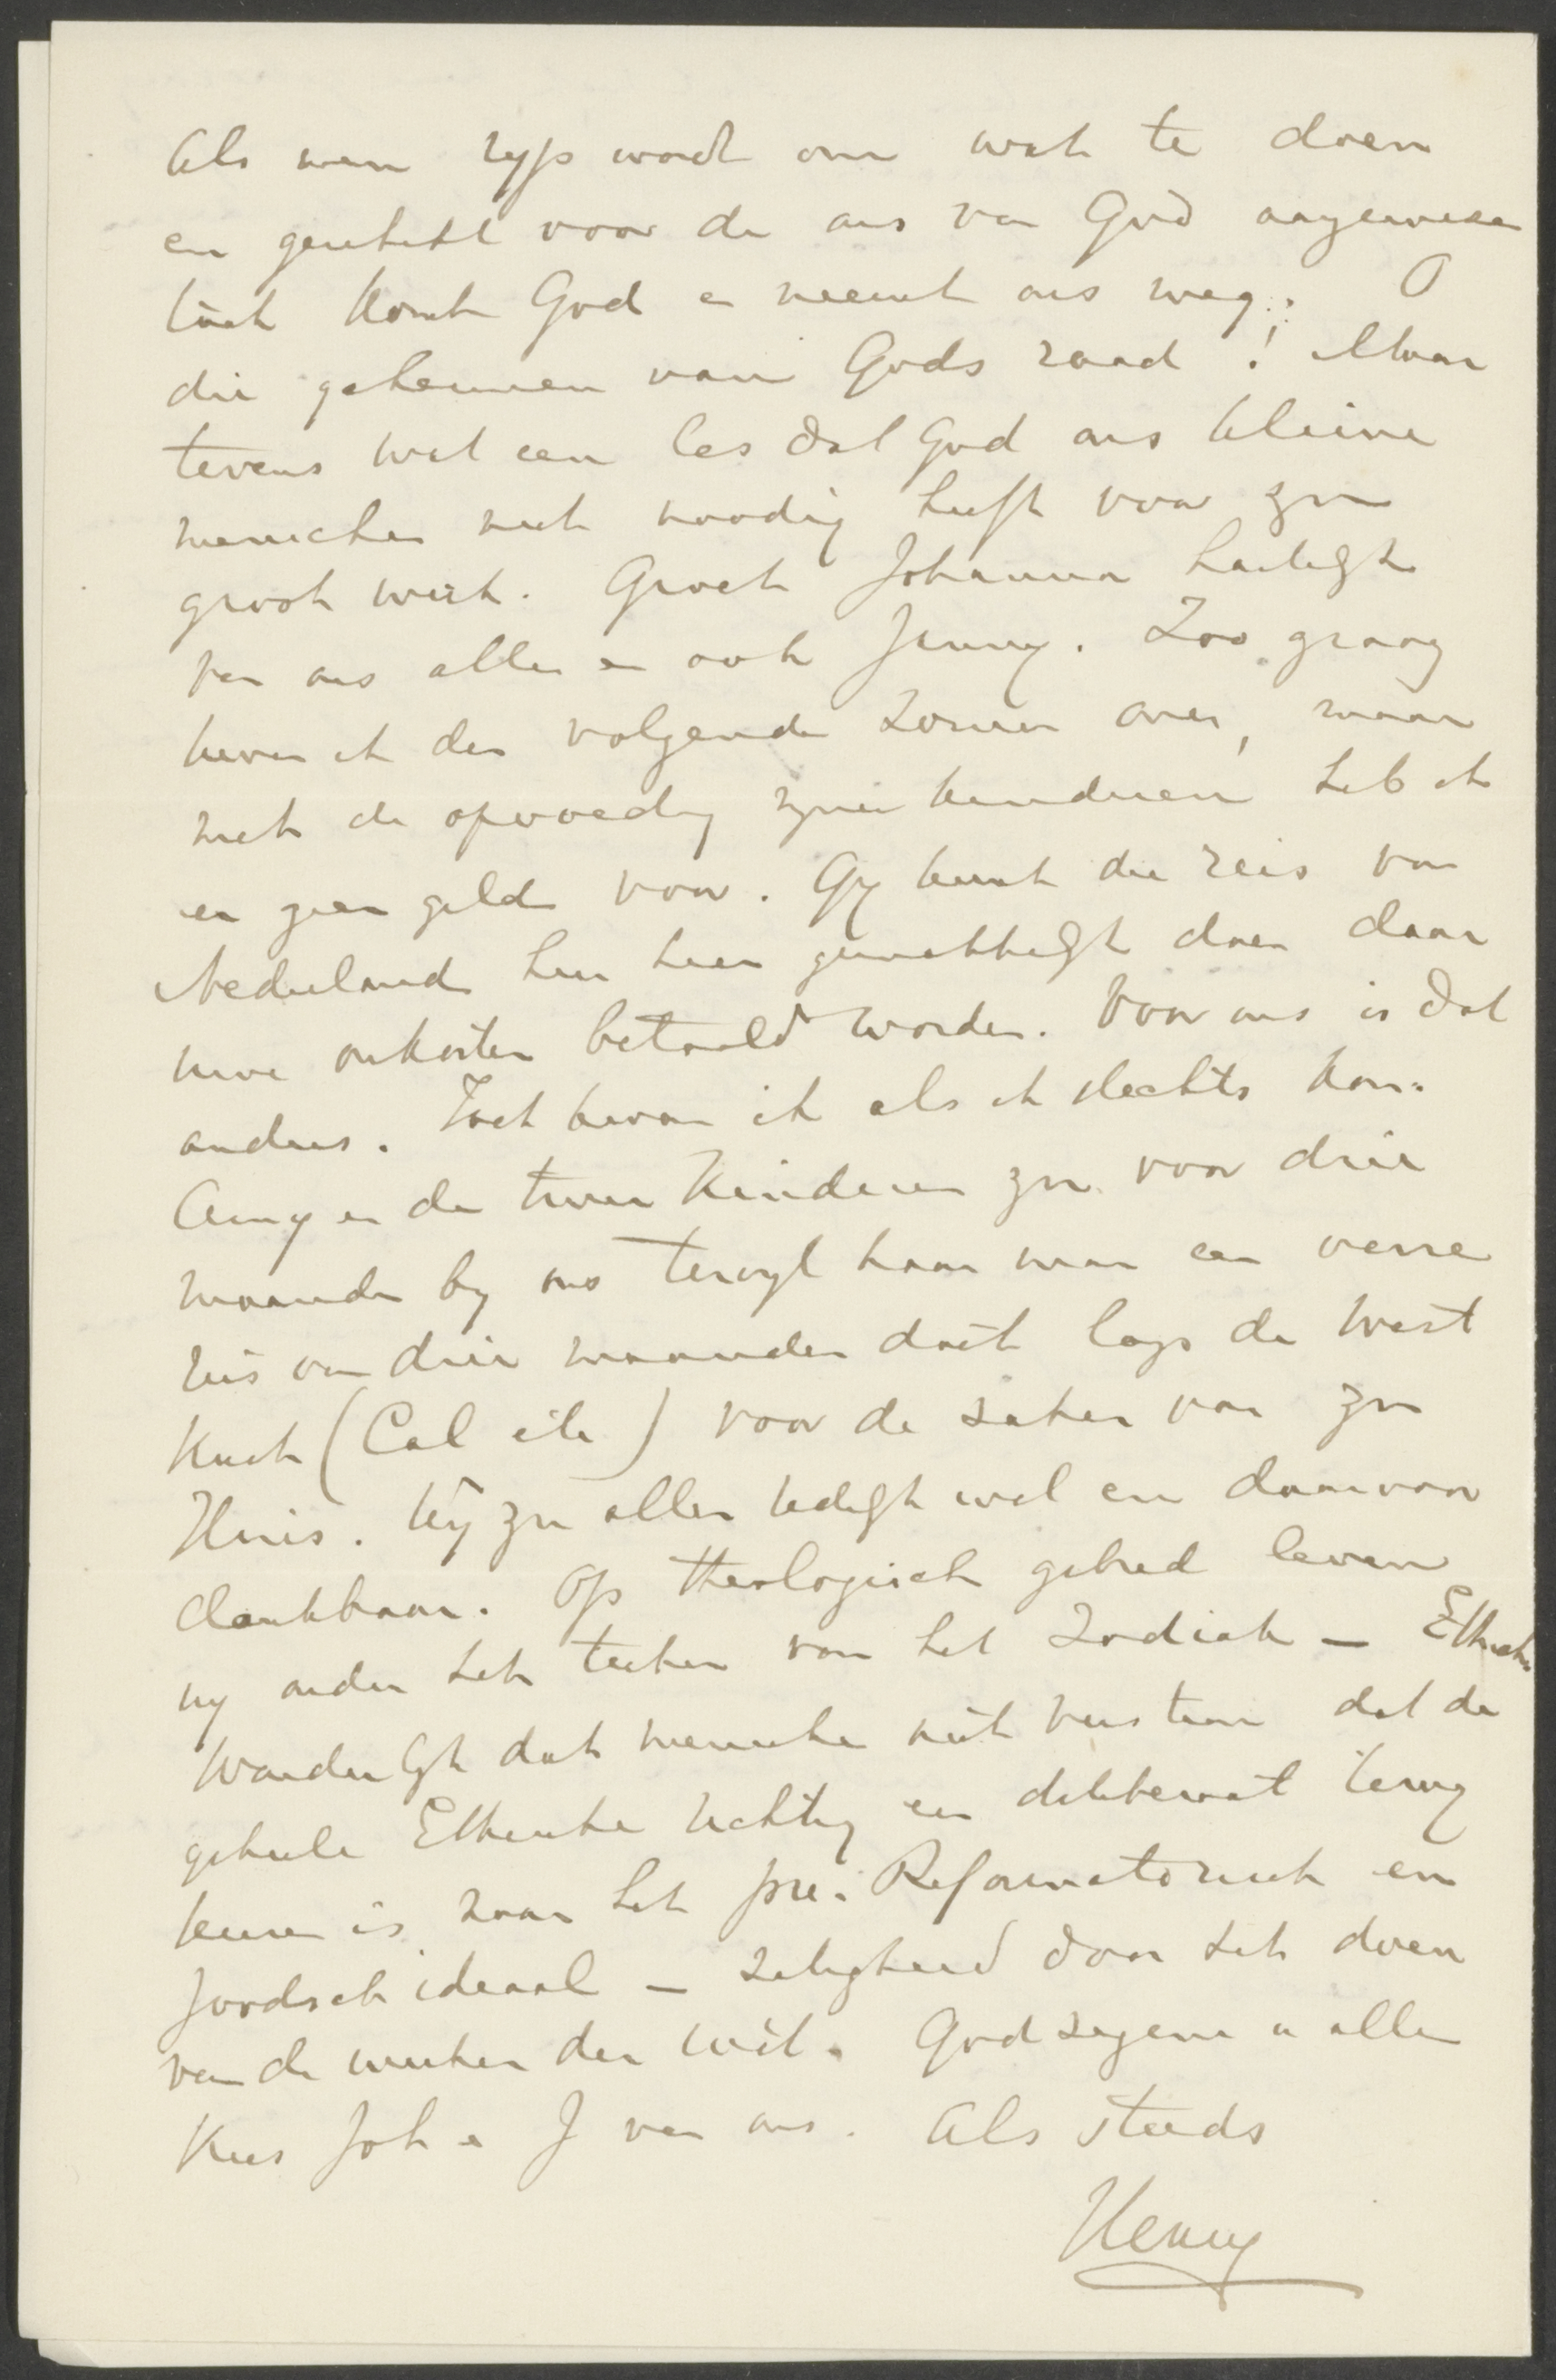 Als men rijp wordt om wat te doen
en geschikt voor de ons van God aangewezen
taak komt God en neemt ons weg. O
die geheimen van Gods raad! Maar
tevens wat een les dat God ons kleine
menschen niet noodig heeft voor zijn
groot werk. Groet Johanna hartelijk
van ons allen en ook Jenny. Zoo graag
kwam ik den volgende zomer over, maar
met de opvoeding mijner kinderen heb ik
er geen geld voor. Gij kunt die reis van
Nederland hier heen gemakkelijk doen daar
uwe onkosten betaald worden. Voor ons is dat
anders. Toch kwam ik als ik slechts kon.
Amy en de twee kinderen zijn voor drie
maanden bij ons terwijl haar man een verre
reis van drie maanden doet langs de West
Kust (Cal etc) voor de zaken van zijn
Huis. Wij zijn allen redelijk wel en daarvoor
dankbaar. Op theologisch gebied leven
wij onder het teeken van het Zodiak — Ethische
Wonderlijk dat menschen niet verstaan dat de
geheele Ethische richting een deliberaat terug
keeren is naar het pre-Reformatorisch en
Joodsch ideaal — zaligheid door het doen
van de werken der wet. God zegene u allen
Kus Joh en J van ons. Als steeds
Henry